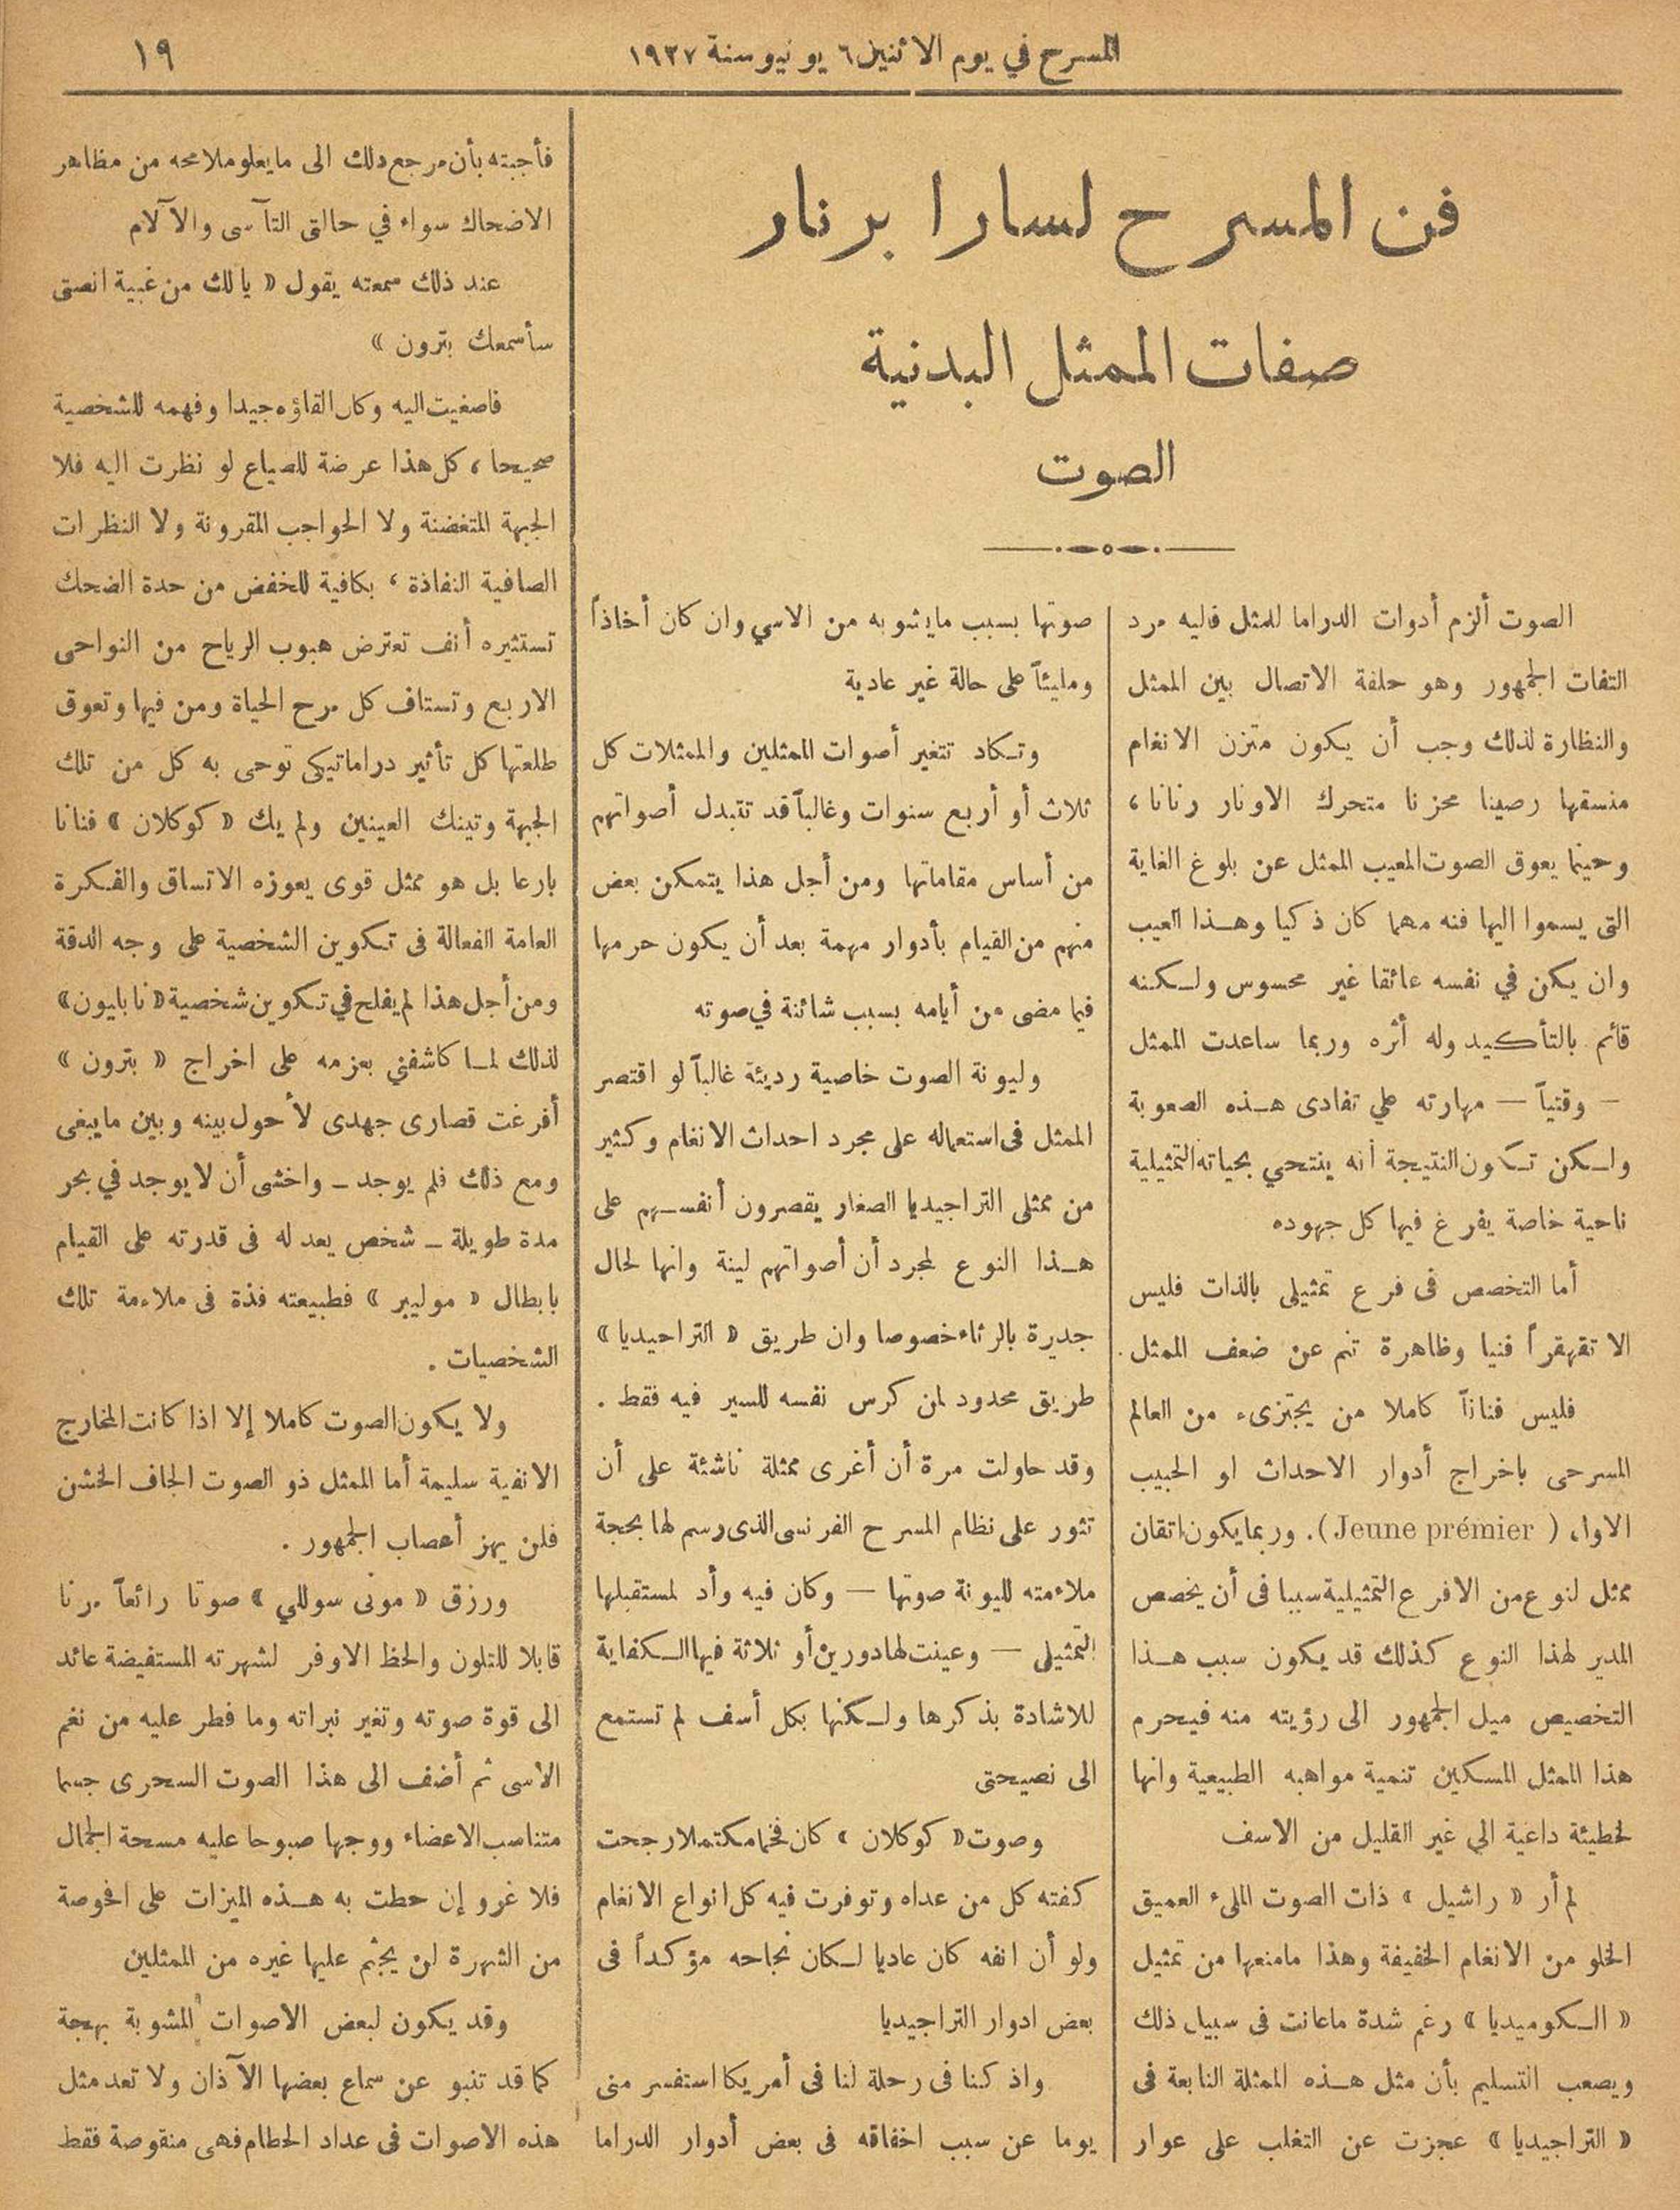 المسرح في يوم الاثنين ٦ يونيو سنة ١٩٢٧
١٩
فن المسرح لسارا برنار
صفات الممثل البدنية
الصوت
الصوت ألزم أدوات الدراما للمثل فاليه مرد
التفات الجمهور وهو حلقة الاتصال بين الممثل
والنظارة لذلك وجب أن يكون متزن الانغام
منسقها رصينا محزنا متحرك الاوتار رنانا ،
وحينما يعوق الصوت المعيب الممثل عن بلوغ الغاية
التى يسموا اليها فنه مهما كان ذكيا وهذا العيب
وان يكن في نفسه عائقا غير محسوس ولكنه
قائم بالتأكيد وله أثره وربما ساعدت الممثل
— وقتياً — مهارته علي تفادى هذه الصعوبة
ولكن تكون النتيجة أنه ينتحي بحياته التمثيلية
ناحية خاصة يفرغ فيها كل جهوده
أما التخصص فى فرع تمثيلى بالذات فليس
الا تقهقراً فنيا وظاهرة تنم عن ضعف الممثل .
فليس فناناً كاملا من يجتزىء من العالم
المسرحى باخراج أدوار الاحداث او الحبيب
الاول ( Jeune prémier ). وربما يكون اتقان
ممثل لنوع من الافرع التمثيلية سببا فى أن يخصص
المدير لهذا النوع كذلك قد يكون سبب هذا
التخصيص ميل الجمهور الى رؤيته منه فيحرم
هذا الممثل المسكين تنمية مواهبه الطبيعية وانها
لخطيئة داعية الي غير القليل من الاسف
لم أر « راشيل » ذات الصوت الملىء العميق
الخلو من الانغام الخفيفة وهذا مامنعها من تمثيل
« الكوميديا » رغم شدة ماعانت فى سبيل ذلك
ويصعب التسليم بأن مثل هذه الممثلة النابعة فى
« التراجيديا » عجزت عن التغلب على عوار
صوتها بسبب مايشوبه من الاسي وان كان أخاذاً
ومليئاً على حالة غير عادية
وتكاد تتغير أصوات الممثلين والممثلات كل
ثلاث أو أربع سنوات وغالباً قد تتبدل أصواتهم
من أساس مقاماتها ومن أجل هذا يتمكن بعض
منهم من القيام بأدوار مهمة بعد أن يكون حرمها
فيما مضى من أيامه بسبب شائنة في صوته
وليونة الصوت خاصية رديئة غالباً لو اقتصر
الممثل فى استعماله على مجرد احداث الانغام وكثير
من ممثلى التراجيديا الصغار يقصرون أنفسهم على
هذا النوع لمجرد أن أصواتهم لينة وانها لحال
جديرة بالرثاء خصوصا وان طريق « التراحيديا »
طريق محدود لمن كرس نفسه للسير فيه فقط .
وقد حاولت مرة أن أغرى ممثلة ناشئة على أن
تثور على نظام المسرح الفرنسى الذى رسم لها بحجة
ملاءمته لليونة صوتها — وكان فيه وأد لمستقبلها
التمثيلى — وعينت لها دورين أو ثلاثة فيها الكفاية
للاشادة بذكرها ولكنها بكل أسف لم تستمع
الى نصيحتى
وصوت « كوكلان » كان فخما مكتملا رجحت
كفته كل من عداه وتوفرت فيه كل انواع الانغام
ولو أن انفه كان عاديا لكان نجاحه مؤكداً فى
بعض ادوار التراجيديا
واذ كنا فى رحلة لنا فى أمريكا استفسر منى
يوما عن سبب اخفاقه فى بعض أدوار الدراما
فأجبته بأن مرجع ذلك الى مايعلو ملامحه من مظاهر
الاضحاك سواء في حالتى التآسى والآلام
عند ذلك سمعته يقول « يالك من غبية انصتى
سأسمعك بترون »
فاصغيت اليه وكان القاؤه جيدا وفهمه للشخصية
صحيحا ، كل هذا عرضة للضياع لو نظرت اليه فلا
الجبهة المتغضنة ولا الحواجب المقرونة ولا النظرات
الصافية النفاذة ، بكافية للخفض من حدة الضحك
تستثيره أنف تعترض هبوب الرياح من النواحى
الاربع وتستاف كل مرح الحياة ومن فيها وتعوق
طلعتها كل تأثير دراماتيكى توحى به كل من تلك
الجبهة وتينك العينين ولم يك « كوكلان » فنانا
بارعا بل هو ممثل قوى يعوزه الاتساق والفكرة
العامة الفعالة فى تكوين الشخصية على وجه الدقة
ومن أجل هذا لم يفلح في تكوين شخصية « نابليون »
لذلك لما كاشفني بعزمه على اخراج « بترون »
أفرغت قصارى جهدى لأحول بينه وبين مايبغى
ومع ذلك فلم يوجد - واخشى أن لايوجد في بحر
مدة طويلة - شخص يعد له فى قدرته على القيام
بابطال « موليير » فطبيعته فذة فى ملاءمة تلك
الشخصيات .
ولا يكون الصوت كاملا إلا اذا كانت المخارج
الانفية سليمة أما الممثل ذو الصوت الجاف الخشن
فلن يهز أعصاب الجمهور .
ورزق « مونى سوللي » صوتا رائعاً مرنا
قابلا للتلون والحظ الاوفر لشهرته المستفيضة عائد
الى قوة صوته وتغير نبراته وما فطر عليه من نغم
الاسى ثم أضف الى هذا الصوت السحرى جسما
متناسب الاعضاء ووجها صبوحا عليه مسحة الجمال
فلا غرو إن حطت به هذه الميزات على افحوصة
من الشهرة لن يجثم عليها غيره من الممثلين
وقد يكون لبعض الاصوات المشوبة بهجة
كما قد تنبو عن سماع بعضها الآذان ولا تعد مثل
هذه الاصوات فى عداد الحطام فهى منقوصة فقط